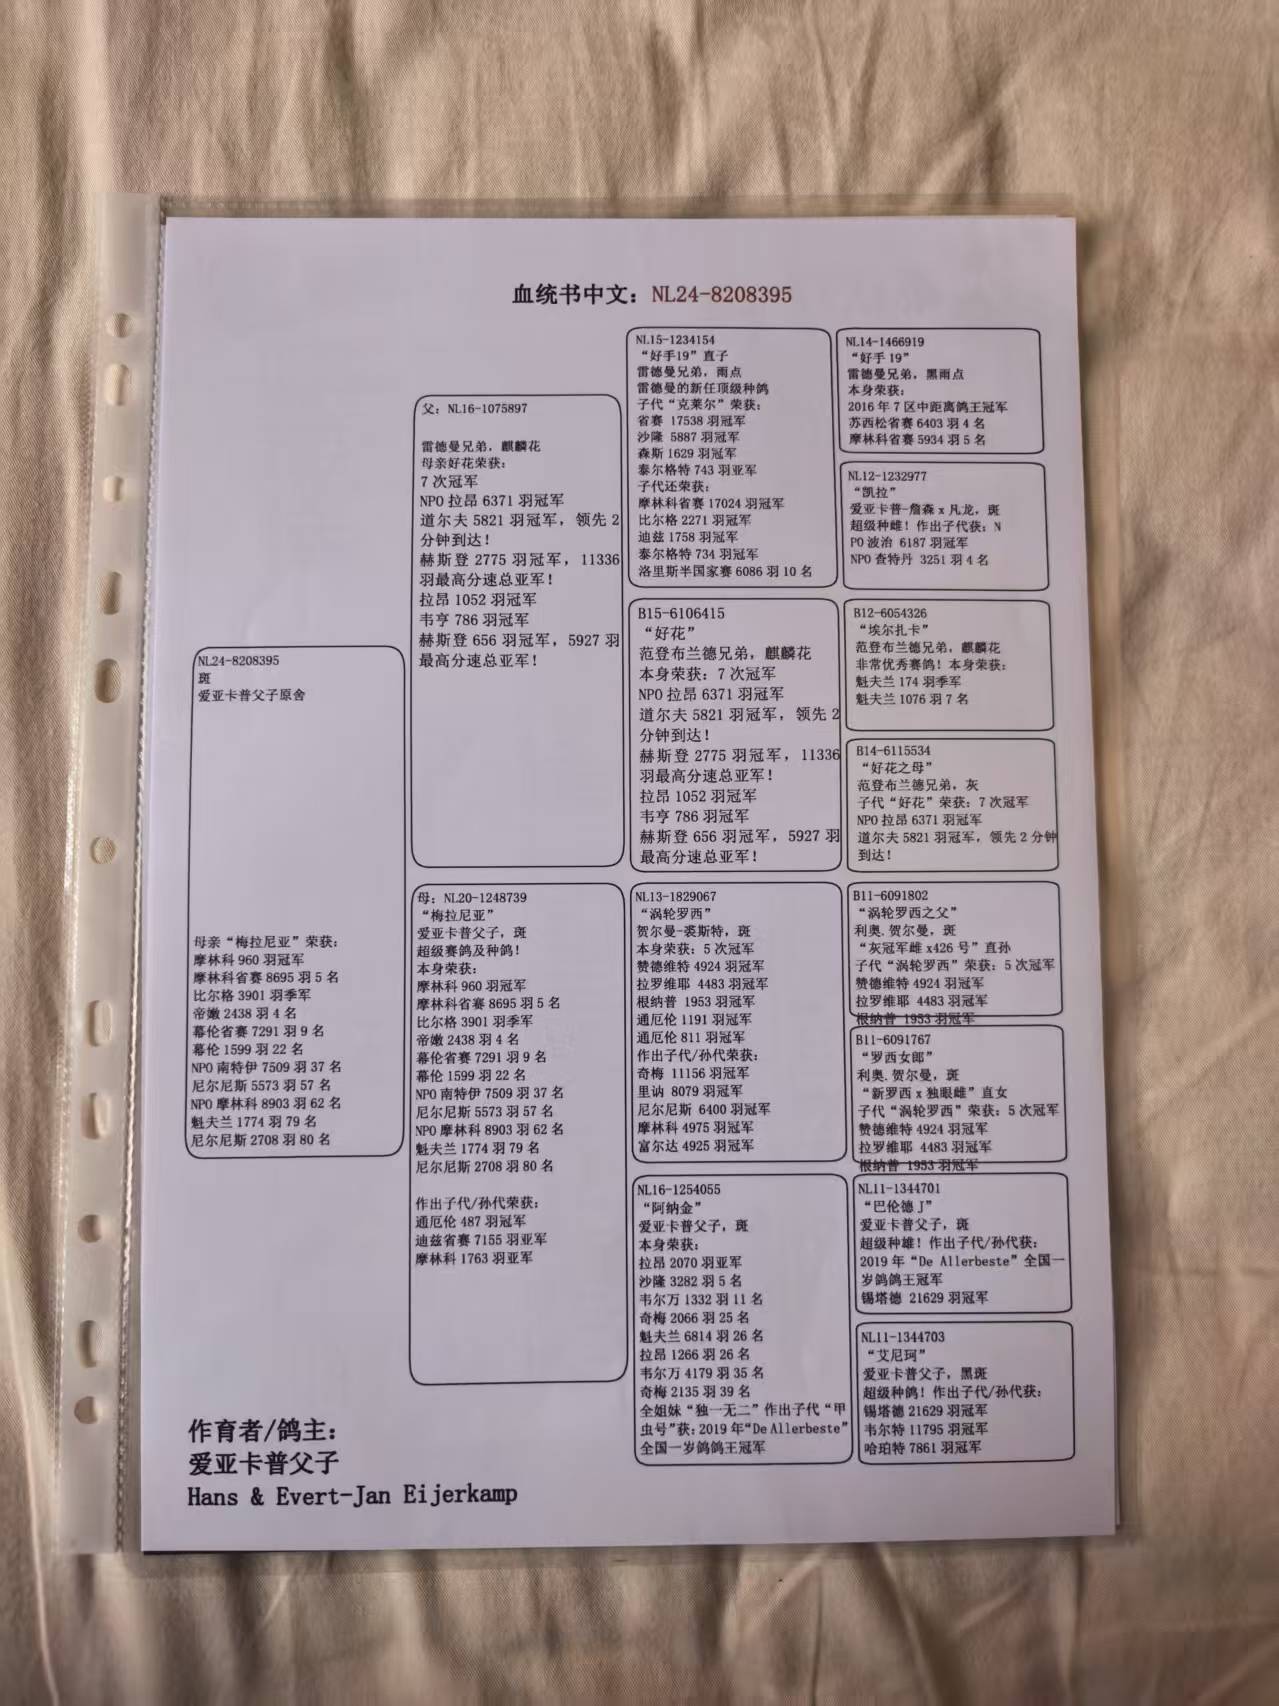 血统书中文：NL24-8208395
NL24-8208395
斑
爱亚卡普父子原舍
母亲“梅拉尼亚”荣获：
摩林科 960 羽冠军
摩林科省赛 8695 羽 5 名
比尔格 3901 羽季军
帝嫩 2438 羽 4 名
幕伦省赛 7291 羽 9 名
幕伦 1599 羽 22 名
NPO 南特伊 7509 羽 37 名
尼尔尼斯 5573 羽 57 名
NPO 摩林科 8903 羽 62 名
魁夫兰 1774 羽 79 名
尼尔尼斯 2708 羽 80 名
父：NL16-1075897
雷德曼兄弟，麒麟花
母亲好花荣获：
7 次冠军
NPO 拉昂 6371 羽冠军
道尔夫 5821 羽冠军，领先 2
分钟到达！
赫斯登 2775 羽冠军，11336
羽最高分速总亚军！
拉昂 1052 羽冠军
韦亨 786 羽冠军
赫斯登 656 羽冠军，5927 羽
最高分速总亚军！
母：NL20-1248739
“梅拉尼亚”
爱亚卡普父子，斑
超级赛鸽及种鸽！
本身荣获：
摩林科 960 羽冠军
摩林科省赛 8695 羽 5 名
比尔格 3901 羽季军
帝嫩 2438 羽 4 名
幕伦省赛 7291 羽 9 名
幕伦 1599 羽 22 名
NPO 南特伊 7509 羽 37 名
尼尔尼斯 5573 羽 57 名
NPO 摩林科 8903 羽 62 名
魁夫兰 1774 羽 79 名
尼尔尼斯 2708 羽 80 名
作出子代/孙代荣获：
通厄伦 487 羽冠军
迪兹省赛 7155 羽亚军
摩林科 1763 羽亚军
NL15-1234154
“好手19”直子
雷德曼兄弟，雨点
雷德曼的新任顶级种鸽
子代“克莱尔”荣获：
省赛 17538 羽冠军
沙隆 5887 羽冠军
森斯 1629 羽冠军
泰尔格特 743 羽亚军
子代还荣获：
摩林科省赛 17024 羽冠军
比尔格 2271 羽冠军
迪兹 1758 羽冠军
泰尔格特 734 羽冠军
洛里斯半国家赛 6086 羽 10 名
B15-6106415
“好花”
范登布兰德兄弟，麒麟花
本身荣获：7 次冠军
NPO 拉昂 6371 羽冠军
道尔夫 5821 羽冠军，领先 2
分钟到达！
赫斯登 2775 羽冠军，11336
羽最高分速总亚军！
拉昂 1052 羽冠军
韦亨 786 羽冠军
赫斯登 656 羽冠军，5927 羽
最高分速总亚军！
NL13-1829067
“涡轮罗西”
贺尔曼-裘斯特，斑
本身荣获：5 次冠军
赞德维特 4924 羽冠军
拉罗维耶 4483 羽冠军
根纳普 1953 羽冠军
通厄伦 1191 羽冠军
通厄伦 811 羽冠军
作出子代/孙代荣获：
奇梅 11156 羽冠军
里讷 8079 羽冠军
尼尔尼斯 6400 羽冠军
摩林科 4975 羽冠军
富尔达 4925 羽冠军
NL16-1254055
“阿纳金”
爱亚卡普父子，斑
本身荣获：
拉昂 2070 羽亚军
沙隆 3282 羽 5 名
韦尔万 1332 羽 11 名
奇梅 2066 羽 25 名
魁夫兰 6814 羽 26 名
拉昂 1266 羽 26 名
韦尔万 4179 羽 35 名
奇梅 2135 羽 39 名
全姐妹“独一无二”作出子代“甲
虫号”获：2019 年“De Allerbeste”
全国一岁鸽鸽王冠军
NL14-1466919
“好手 19”
雷德曼兄弟，黑雨点
本身荣获：
2016 年 7 区中距离鸽王冠军
苏西松省赛 6403 羽 4 名
摩林科省赛 5934 羽 5 名
NL12-1232977
“凯拉”
爱亚卡普-詹森 x 凡龙，斑
超级种雌！作出子代获：N
PO 波治 6187 羽冠军
NPO 查特丹 3251 羽 4 名
B12-6054326
“埃尔扎卡”
范登布兰德兄弟，麒麟花
非常优秀赛鸽！本身荣获：
魁夫兰 174 羽季军
魁夫兰 1076 羽 7 名
B14-6115534
“好花之母”
范登布兰德兄弟，灰
子代“好花”荣获：7 次冠军
NPO 拉昂 6371 羽冠军
道尔夫 5821 羽冠军，领先 2 分钟
到达！
B11-6091802
“涡轮罗西之父”
利奥.贺尔曼，斑
“灰冠军雌 x426 号”直孙
子代“涡轮罗西”荣获：5 次冠军
赞德维特 4924 羽冠军
拉罗维耶 4483 羽冠军
根纳普 1953 羽冠军
B11-6091767
“罗西女郎”
利奥.贺尔曼，斑
“新罗西 x 独眼雌”直女
子代“涡轮罗西”荣获：5 次冠军
赞德维特 4924 羽冠军
拉罗维耶 4483 羽冠军
根纳普 1953 羽冠军
NL11-1344701
“巴伦德 J”
爱亚卡普父子，斑
超级种雄！作出子代/孙代获：
2019 年“De Allerbeste”全国一
岁鸽鸽王冠军
锡塔德 21629 羽冠军
NL11-1344703
“艾尼珂”
爱亚卡普父子，黑斑
超级种鸽！作出子代/孙代获：
锡塔德 21629 羽冠军
韦尔特 11795 羽冠军
哈珀特 7861 羽冠军
作育者/鸽主：
爱亚卡普父子
Hans & Evert-Jan Eijerkamp